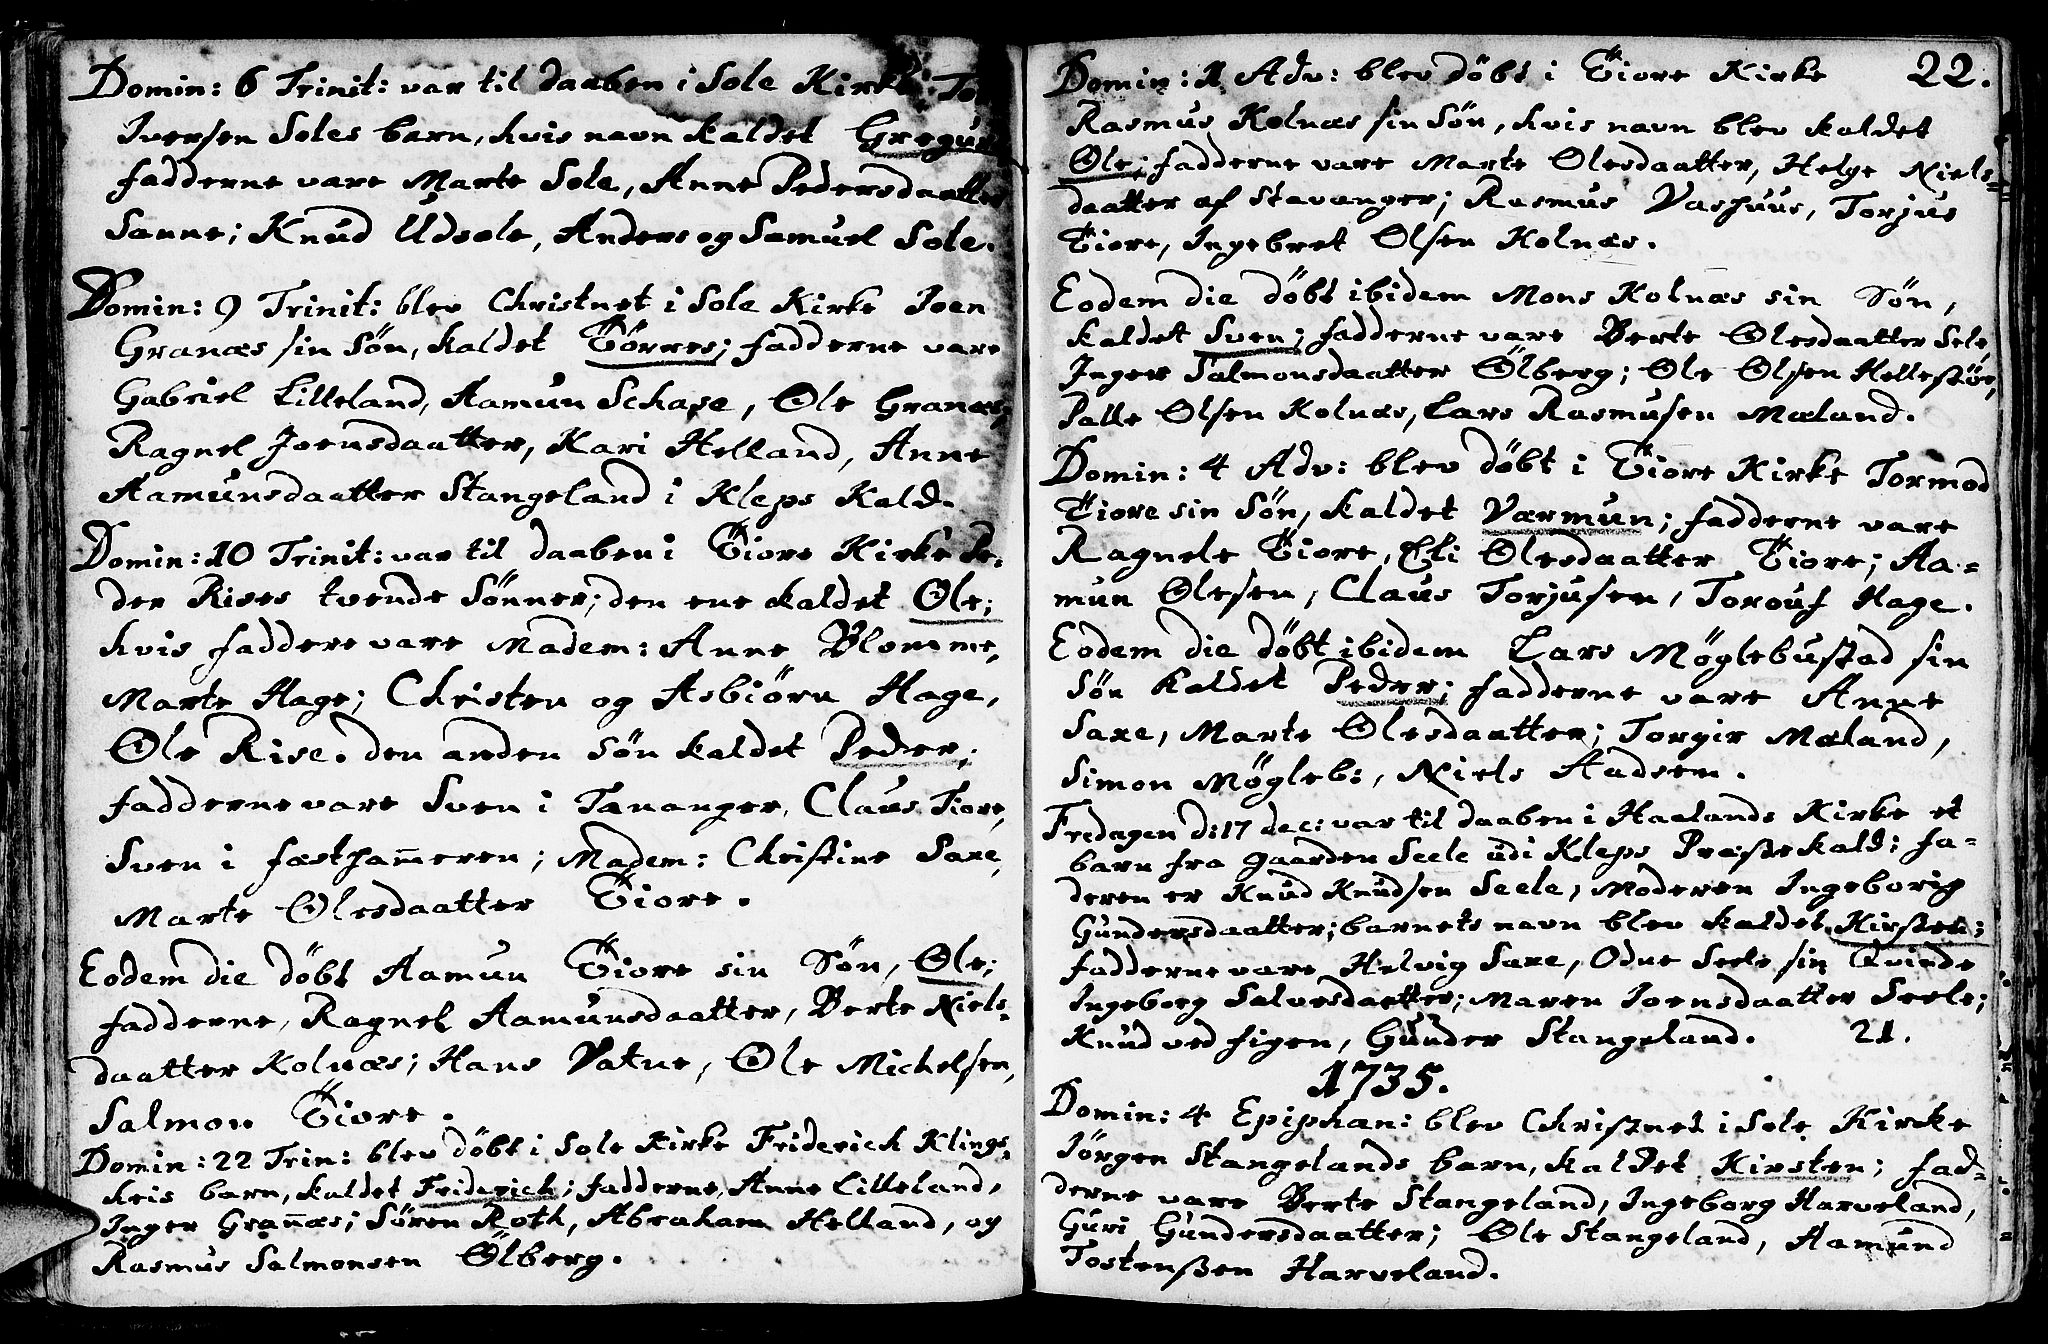 Domin: 6 Trinit: var til daaben i Sole Kirke
Iversen Soles barn, hvis navn kaldet Gregus
fadderne vare Marte Sole, Anne Pedersdaatter
Sanne; Knud Udsole, Anders og Samuel Sole.
Domin: 9 Trinit: blev Christnet i Sole Kirke Joen
Granæs sin Søn, kaldet Törres; fadderne vare
Gabriel Lilleland, Aamun Schaße, Ole Granæs,
Ragnel Joensdaatter, Kari Helland, Anne
Aamunsdaatter Stangeland i Kleps Kald.
Domin: 10 Trinit: var til daaben i Tiore Kirke Pe-
der Rises tvende Sönner; den ene kaldet Ole;
hvis faddere vare Madem: Anne Blomme,
Marte Hage; Christen og Asbiörn Hage,
Ole Rise. den anden Sön kaldet Peder;
fadderne vare Sven i Tananger, Claus Tiore,
Sven i fæstham̅eren; Madem: Christine Saxe,
Marte Olesdaatter Tiore.
Eodem die döbt Aamun Tiore sin Sön, Ole;
fadderne, Ragnel Aamunsdaatter, Berte Niels-
daatter Kolnæs; Hans Vatne, Ole Michelsen,
Salmon Tiore.
Domin: 22 Trin: blev döbt i Sole Kirke Friderich Klings-
heis barn, kaldet Friderich; fadderne, Anne Lilleland,
Inger Gran̅æs; Sören Roth, Abraham Helland, og
Rasmus Salmonsen Ölberg.
22.
Domin: 1 Adv: blev döbt i Tiore Kirke
Rasmus Kolnæs sin Sön, hvis navn blev kaldet
Ole; fadderne vare Marte Olesdaatter, Helge Niels=
daatter af Stavanger; Rasmus Vashuus, Torjus
Tiore, Ingebret Olsen Kolnæs.
Eodem die döbt ibidem Mons Kolnæs sin Sön,
kaldet Sven; fadderne vare Berte Olesdaatter Sele,
Inger Salmonsdaatter Ölberg; Ole Olsen Hellestöe,
Palle Olsen Kolnæs, Lars Rasmusen Mæland.
Domin: 4 Adv: blev döbt i Tiore Kirke Tormod
Tiore sin Sön, kaldet Værmun; fadderne vare
Ragnele Tiore, Eli Olesdaatter Tiore; Aa-
mun Olesen, Claus Torjusen, Torouf Hage.
Eodem die döbt ibidem Lars Möglebustad sin
Sön kaldet Peder; fadderne vare Anne
Saxe, Marte Olesdaatter; Torgir Mæland,
Simon Mögleb:, Niels Aadsen.
Fredagen d: 17 dec: var til daaben i Haalands Kirke et
barn fra gaarden Seele udi Kleps Præstekald: fa-
deren er Knud Knudsen Seele, Moderen Ingeborig
Gundersdaatter; barnets navn blev kaldet Kirsten;
fadderne vare Helvig Saxe, Odne Seele sin Qvinde
Ingeborg Salvesdaatter; Maren Joensdaatter Seele;
Knud ved higen, Gunder Stangeland. 21.
1735.
Domin: 4 Epiphan: blev Christnet i Sole Kircke
Jörgen Stangelands barn, kaldet Kirsten; fad-
derne vare Berte Stangeland, Ingeborg Harveland,
Guri Gundersdaatter; Ole Stangeland, Aamund
Tostenßen Harveland.